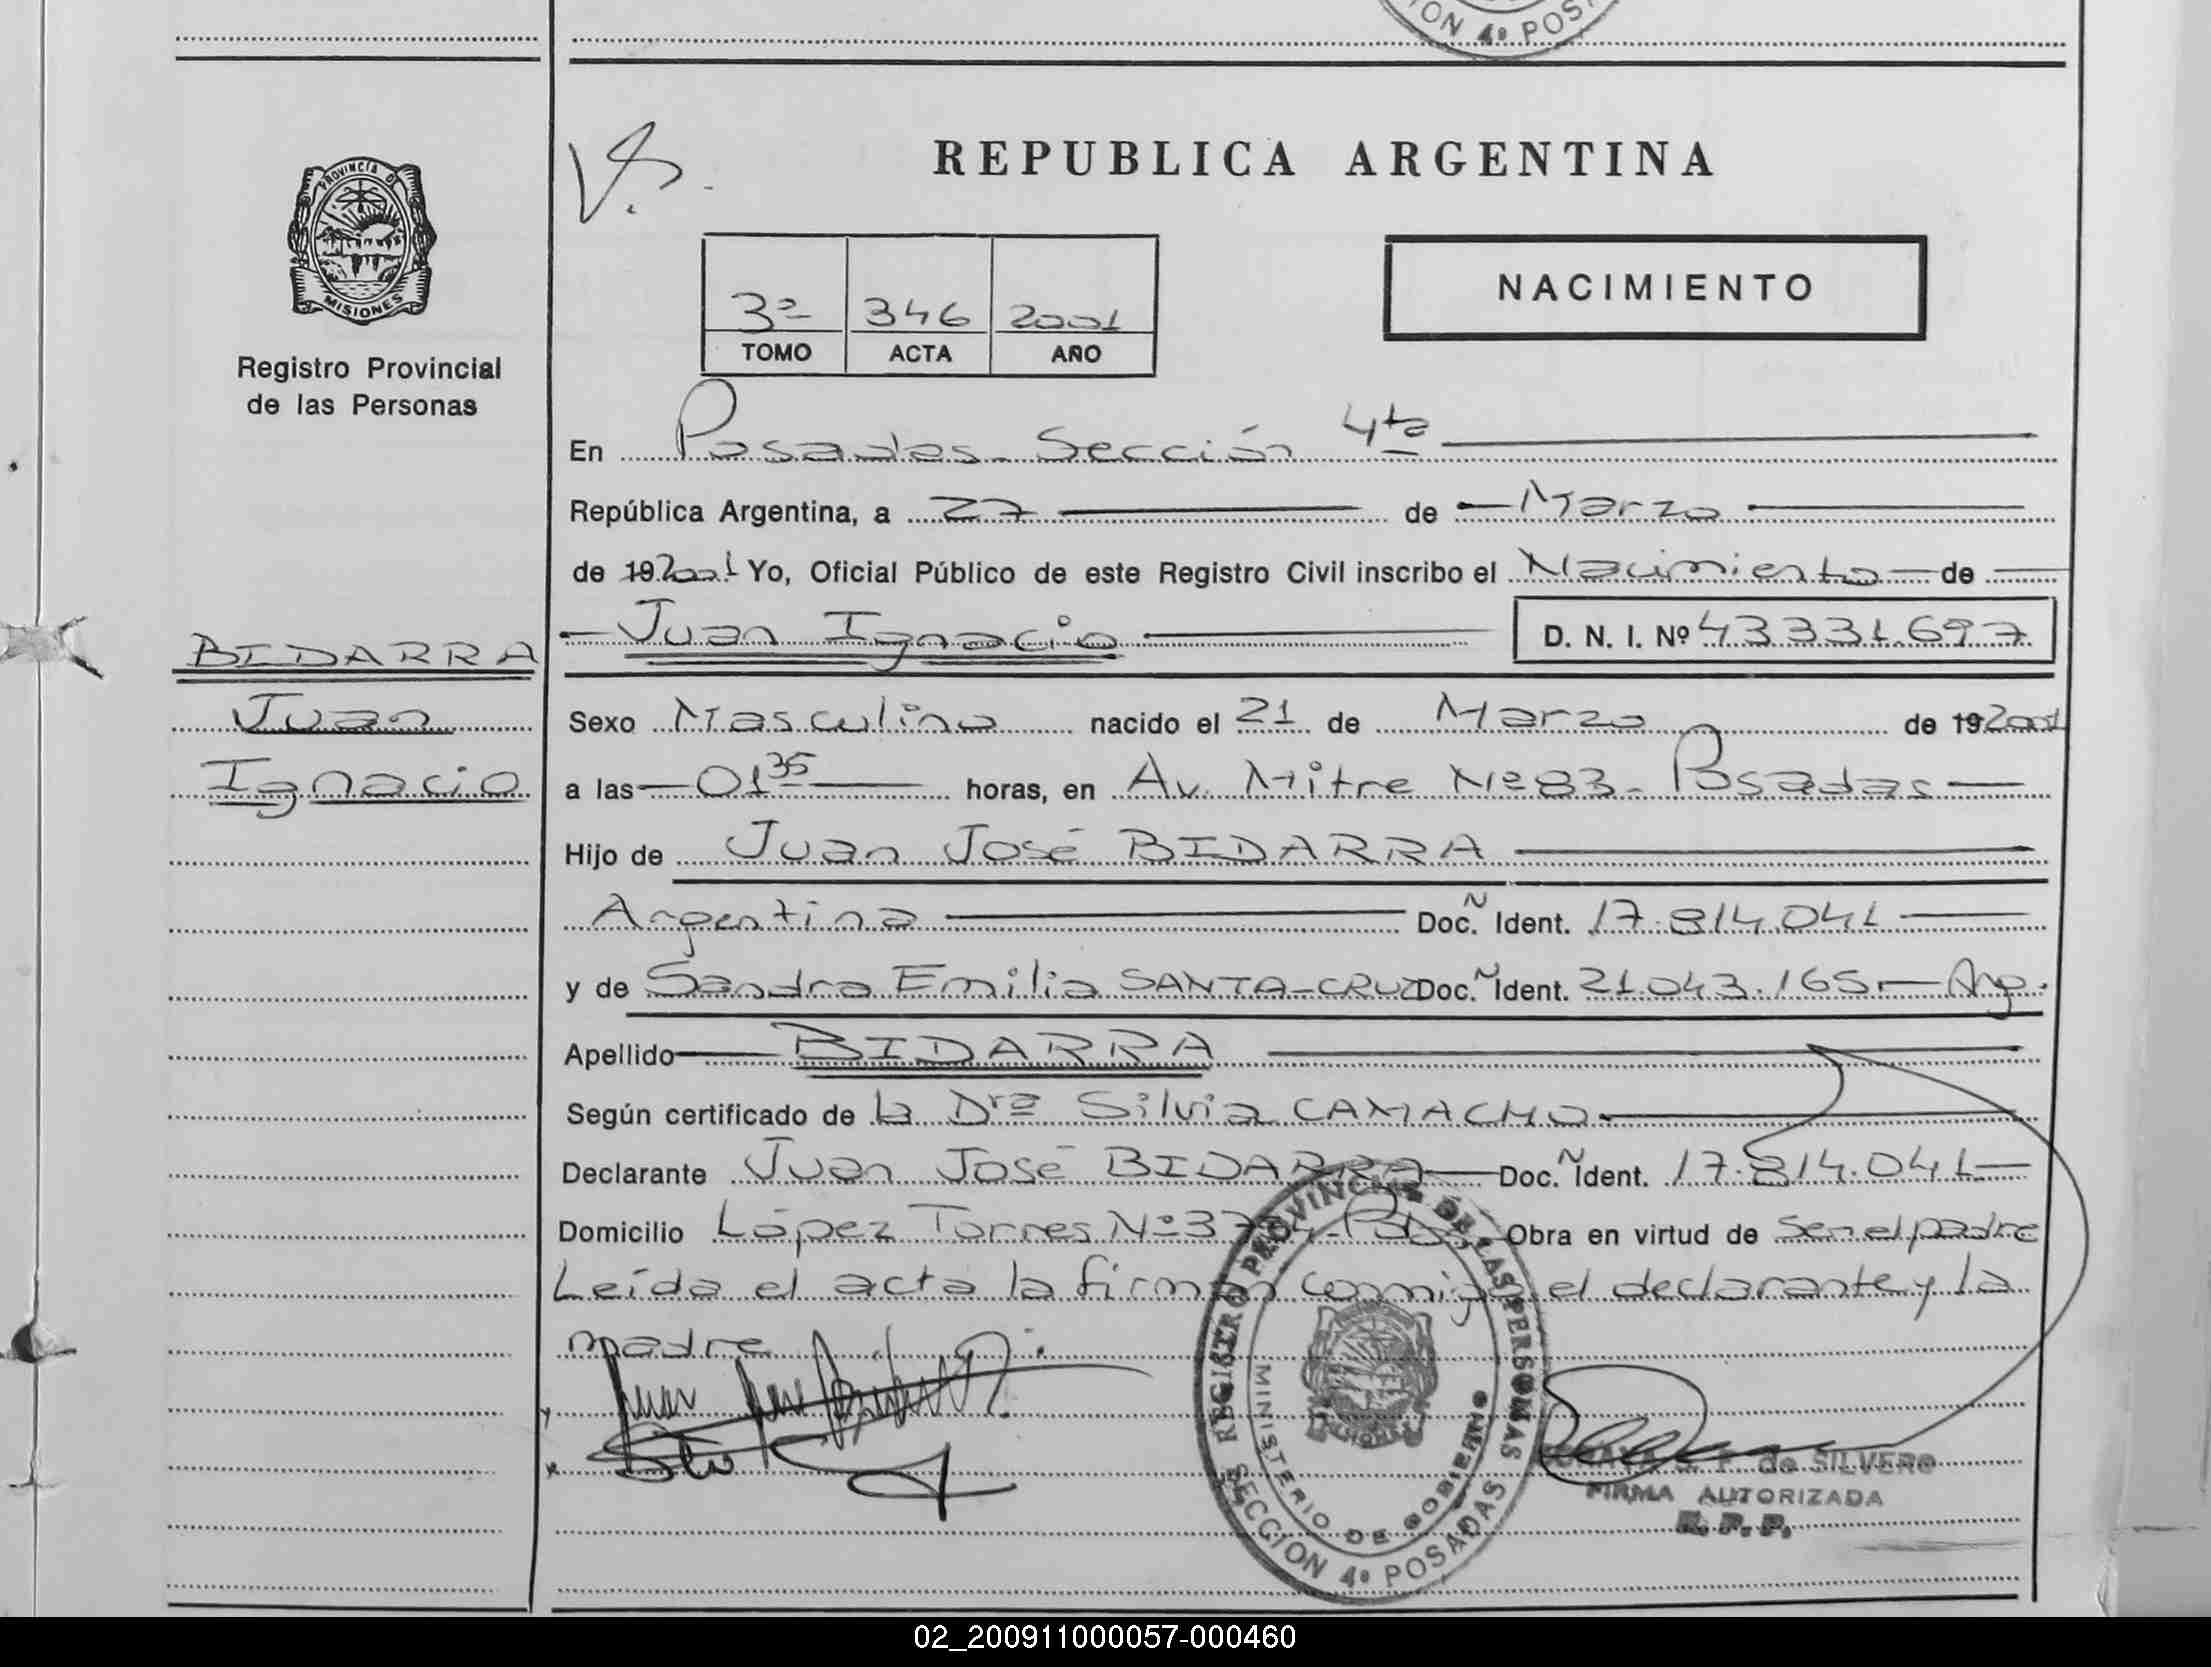 CION 4º POS
REPUBLICA ARGENTINA
PROVINCIA DE
MISIONES
Registro Provincial
de las Personas
NACIMIENTO
3º 346 2001
TOMO ACTA AÑO
En Posadas Sección 4ta
República Argentina, a 27 de Marzo
de 19 2001 Yo, Oficial Público de este Registro Civil inscribo el Nacimiento de
Juan Ignacio D. N. I. Nº 43331.697
BIDARRA
Juan
Ignacio
Sexo Masculino nacido el 21 de Marzo de 19 2001
a las 01 35 horas, en Av. Mitre Nº 83 - Posadas
Hijo de Juan José BIDARRA
Argentina Doc. N Ident. 17.814.041
y de Sandra Emilia SANTA-CRUZ Doc. N Ident. 21.043.165 - Arg.
Apellido BIDARRA
Según certificado de la Dra Silvia CAMACHO
Declarante Juan José BIDARRA Doc. N Ident. 17.814.041
Domicilio López Torres Nº Obra en virtud de ser el padre
Leída el acta la firman conmigo el declarante y la
madre.
REGISTRO PROVINCIAL DE LAS PERSONAS
MINISTERIO DE GOBIERNO
SECCION 4º POSADAS
de SILVERO
FIRMA AUTORIZADA
R. P. P.
02_200911000057-000460